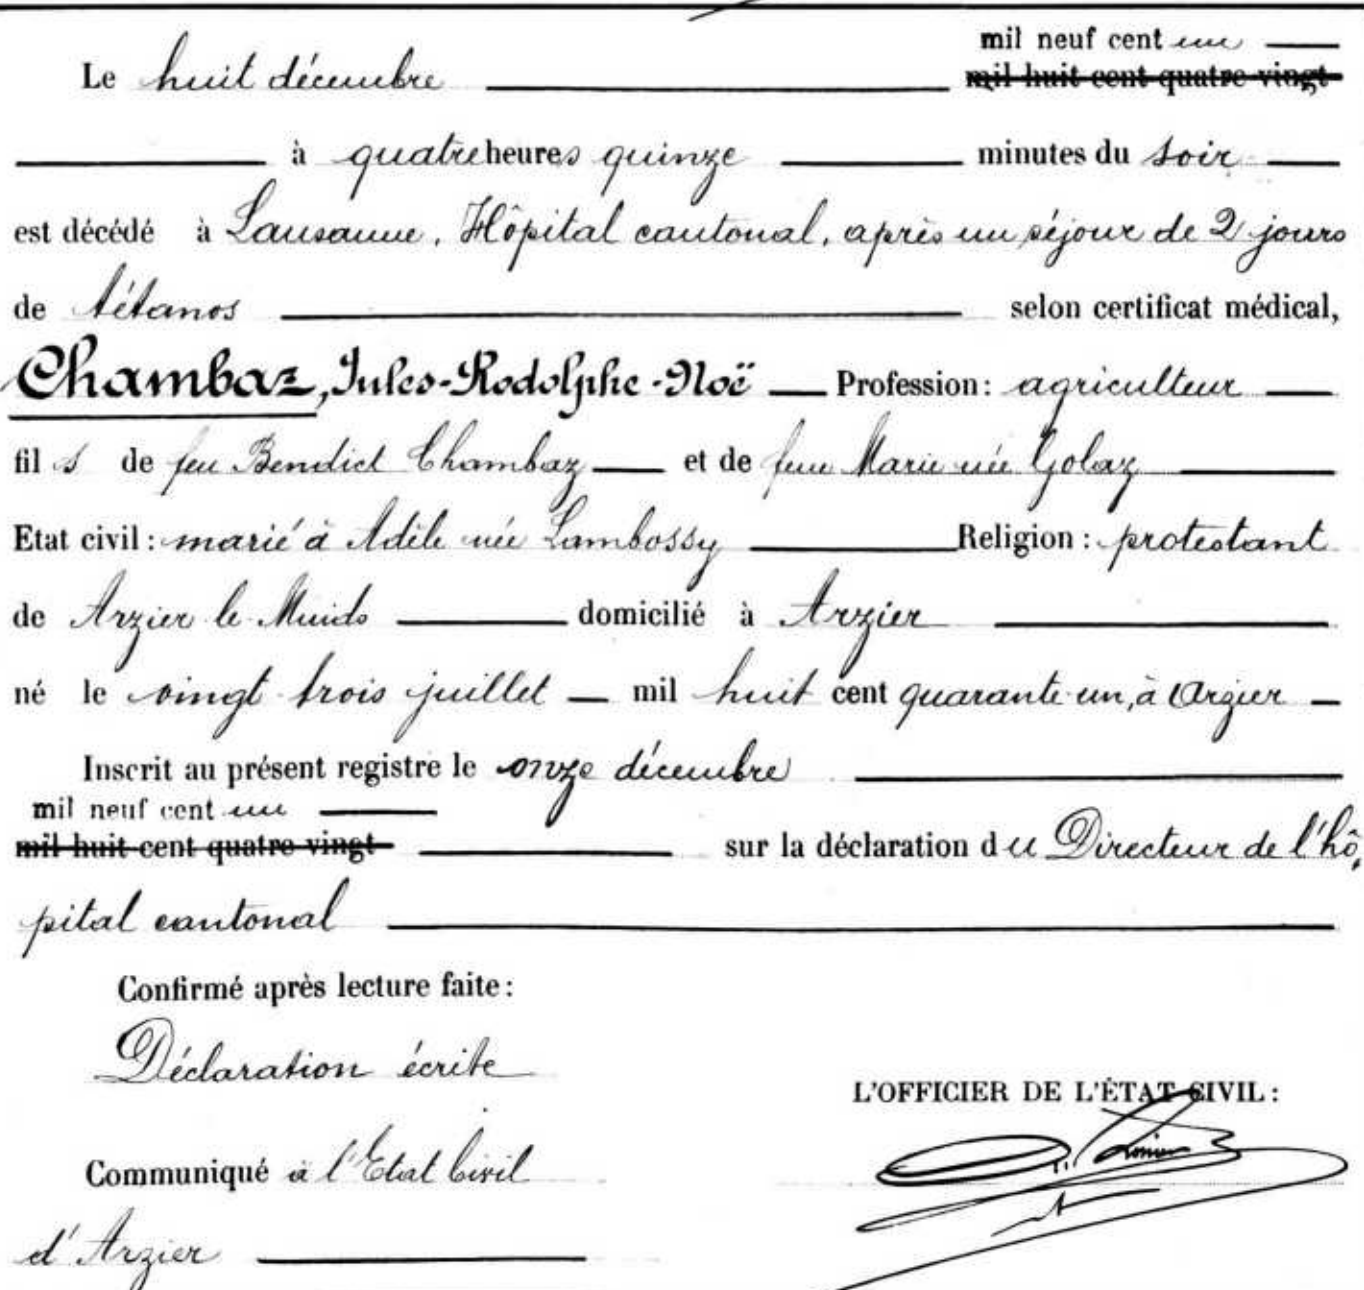 mil neuf cent un
Le huit décembre mil huit cent quatre vingt
à quatre heures quinze minutes du soir
est décédé à Lausanne, Hôpital cantonal, après un séjour de 2 jours
de tétanos selon certificat médical,
Chambaz, Jules-Rodolphe-Noë Profession: agriculteur
fils de feu Bendict Chambaz et de feue Marie née Golaz
Etat civil: marié à Adèle née Lambossy Religion: protestant
de Arzier le Muids domicilié à Arzier
né le vingt trois juillet mil huit cent quarante un, à Arzier
Inscrit au présent registre le onze décembre
mil neuf cent un
mil huit cent quatre vingt sur la déclaration du Directeur de l'hô,
pital cantonal
Confirmé après lecture faite:
Déclaration écrite
L'OFFICIER DE L'ÉTAT CIVIL:
Communiqué à l'Etat Civil
d'Arzier